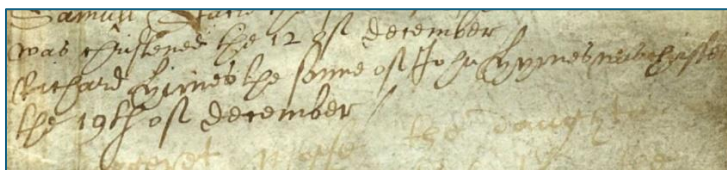 Samuell
was christened the 12 of december
Richard Hyines the sonne of John Hyines was christe
the 19th of december
the daughter